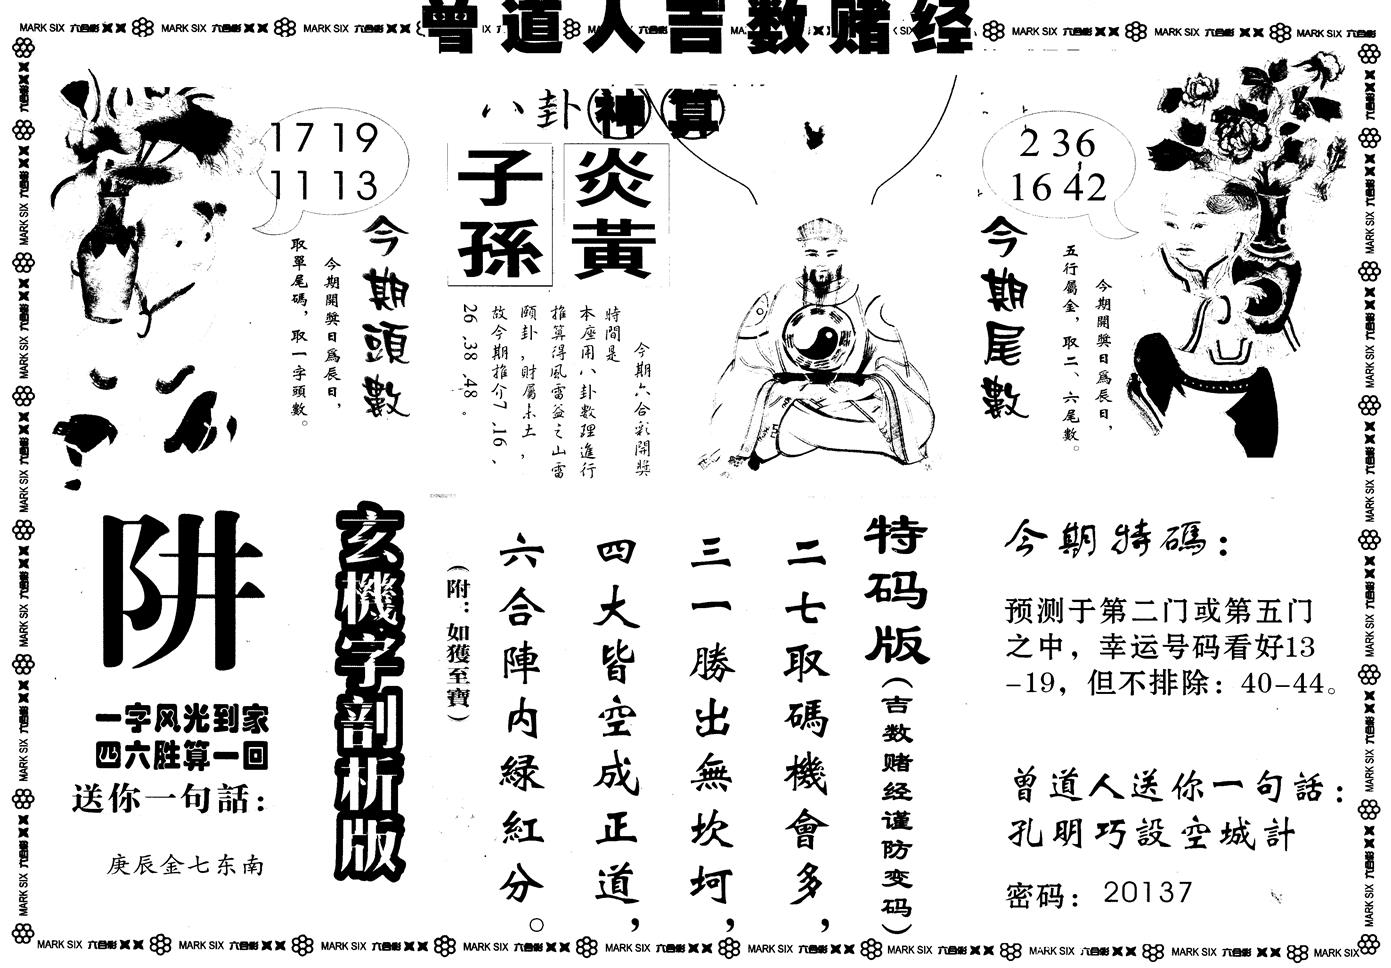 曾道人吉数赌经
八卦神算
炎黃
子孫
17 19
11 13
今期頭數
今期開獎日爲辰日，
取單尾碼，取一字頭數。
今期六合彩開獎
時間是
本座用八卦数理進行
推算得風雷益之山雷
頤卦，財屬未土，
故今期推介7、16、
26、38、48。
2 36
16 42
今期尾數
今期開獎日爲辰日，
五行屬金，取二、六尾數。
阱
一字风光到家
四六胜算一回
送你一句話：
庚辰金七东南
玄機字剖析版
特码版(吉数赌经谨防变码)
二七取碼機會多，
三一勝出無坎坷，
四大皆空成正道，
六合陣内緑紅分。
(附：如獲至寶)
今期特碼：
预测于第二门或第五门
之中，幸运号码看好13
-19，但不排除：40-44。
曾道人送你一句話：
孔明巧設空城計
密码：20137
MARK SIX 六合彩